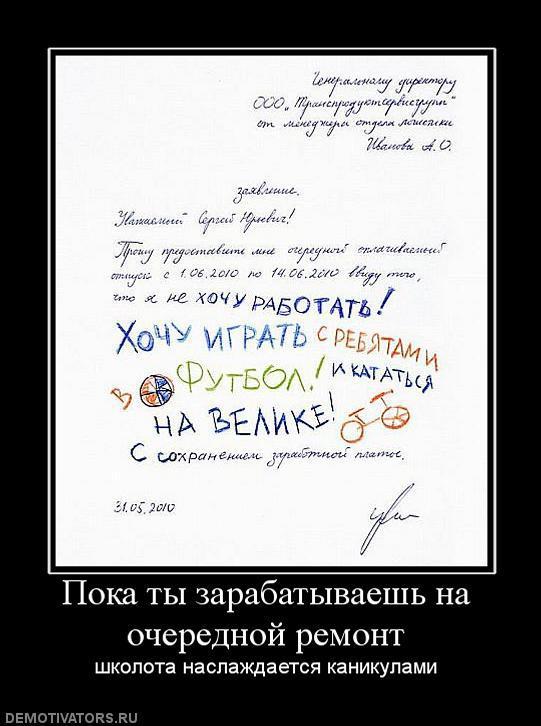 Генеральному директору
ООО „Транспродуктсервисгрупп"
от менеджера отдела логистики
Иванова А.О.
заявление.
Уважаемый Сергей Юрьевич!
Прошу предоставить мне очередной оплачиваемый
отпуск с 1.06.2010 по 14.06.2010 ввиду того,
что я не хочу РАБОТАТЬ!
ХОЧУ ИГРАТЬ С РЕБЯТАМИ
В ФУТБОЛ! И КАТАТЬСЯ
НА ВЕЛИКЕ!
С сохранением заработной платы.
31.05.2010
Пока ты зарабатываешь на
очередной ремонт
школота наслаждается каникулами
DEMOTIVATORS.RU